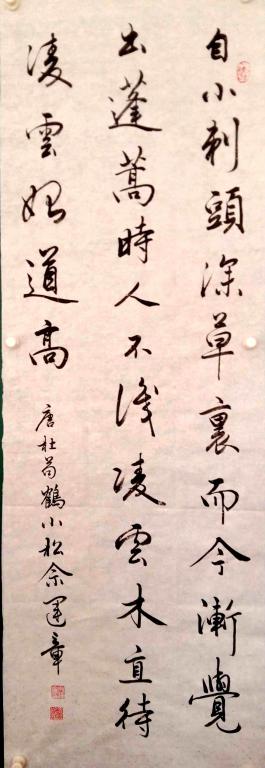 自小刺頭深草裏而今漸覺
出蓬蒿時人不識凌雲木直待
凌雲始道高
唐杜荀鶴小松余運章